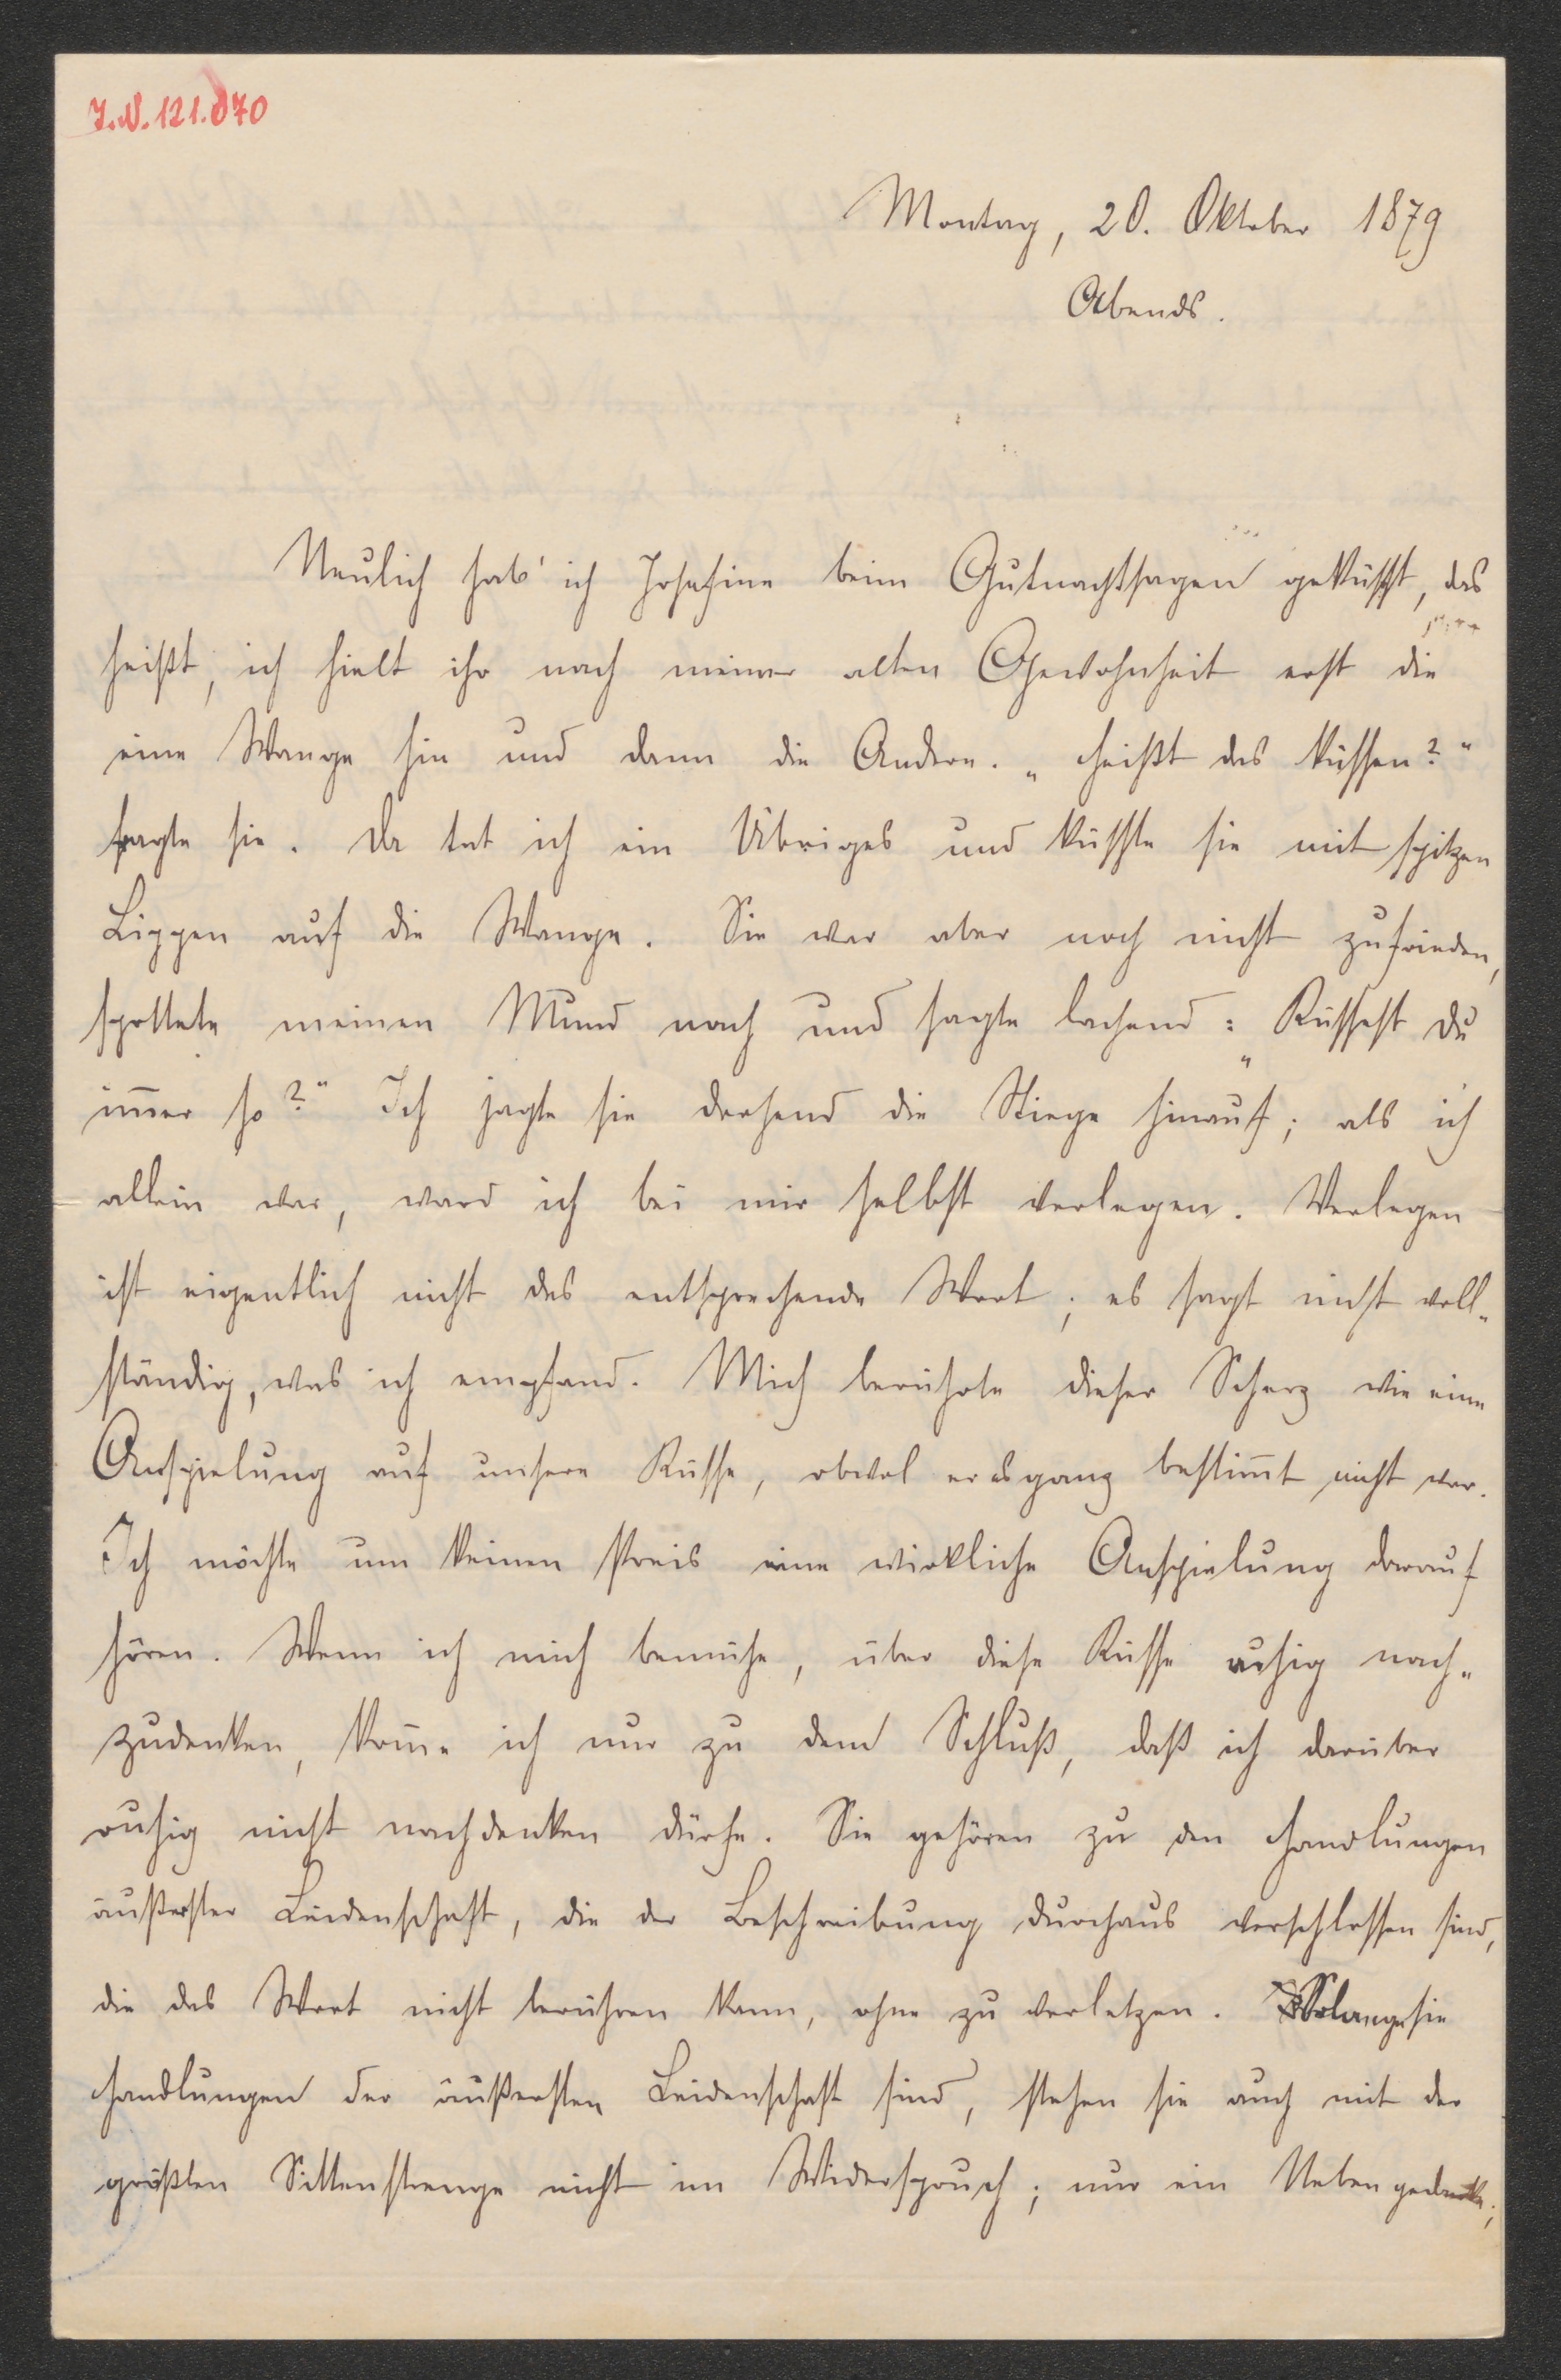 J.N. 121.070
Montag, 20. Oktober 1879
Abends.
Neulich hab' ich Josefine beim Gutnachtsagen geküsst, das
heißt, ich hielt ihr nach meiner alten Gewohnheit erst die
eine Wange hin und dann die Andere. „Heißt das küssen?"
fragte sie. Da tat ich ein Übriges und küsste sie mit spitzen
Lippen auf die Wange. Sie war aber noch nicht zufrieden,
spottete meinen Mund nach und sagte lachend: „Küssest du
im̄er so?" Ich jagte sie drohend die Stiege hinauf; als ich
allein war, ward ich bei mir selbst verlegen. Verlegen
ist eigentlich nicht das entsprechende Wort; es sagt nicht voll-
ständig, was ich empfand. Mich berührte dieser Scherz wie eine
Anspielung auf unsere Küsse, obwol er es ganz bestim̄t nicht war.
Ich möchte um keinen Preis eine wirkliche Anspielung darauf
hören. Wenn ich mich bemühe, über diese Küsse ruhig nach-
zudenken, kom̄e ich nur zu dem Schluß, daß ich darüber
ruhig nicht nachdenken dürfe. Sie gehören zu den Handlungen
äußerster Leidenschaft, die der Beschreibung durchaus verschlossen sind,
die das Wort nicht berühren kann, ohne zu verletzen. Solange sie
Handlungen der äußersten Leidenschaft sind, stehen sie auch mit der
größten Sittenstrenge nicht im Widerspruch; nur ein Nebengedanke,